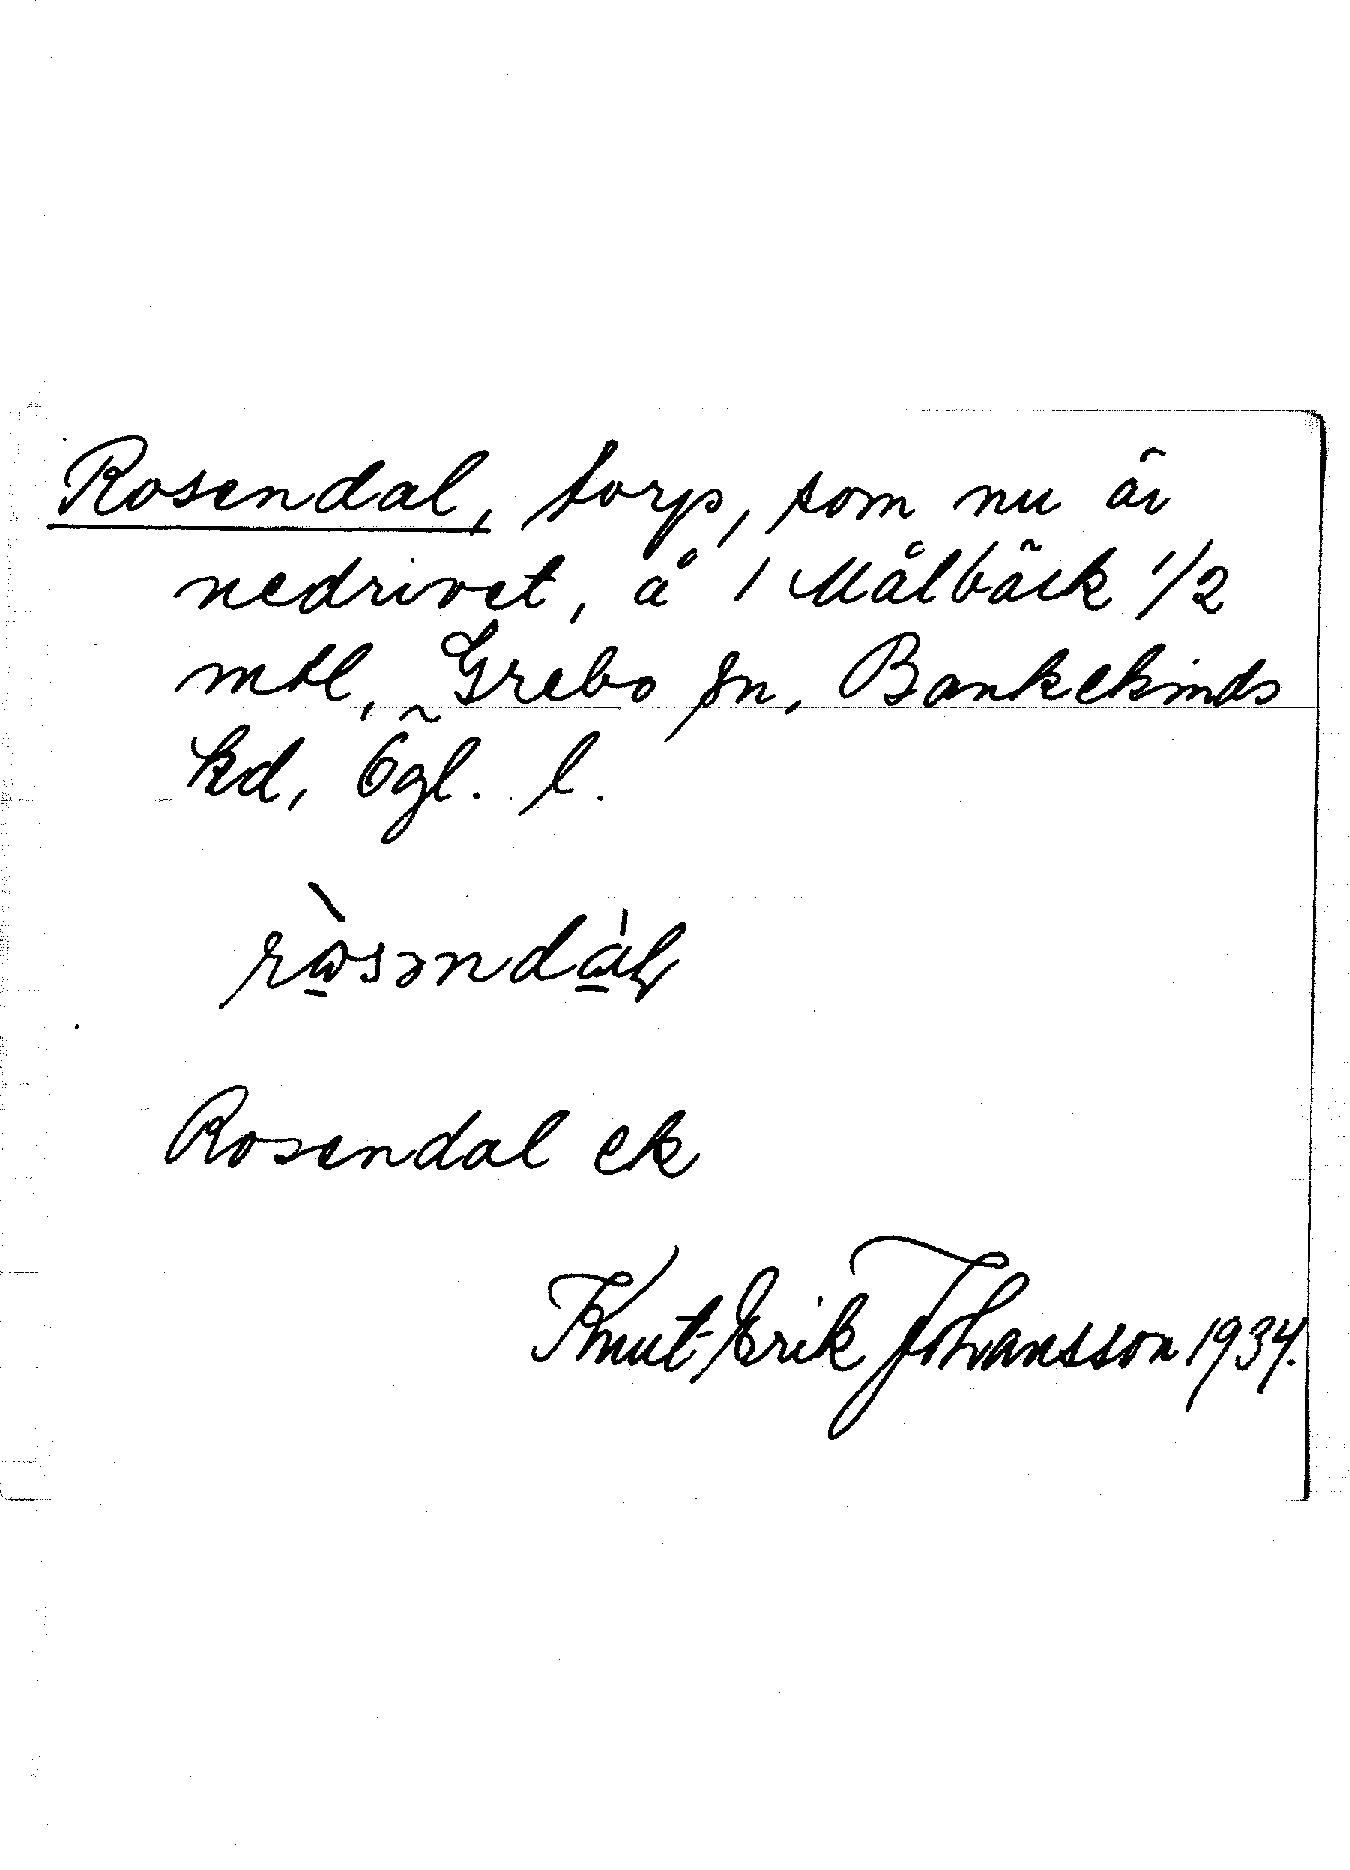 Rosendal, torp, som nu är
nedrivet, å 1 Målbäck 1/2
mtl, Grebo sn, Bankekinds
hd, Ögl. l.
ròsəndàl
Rosendal ek
Knut-Erik Johansson 1934.